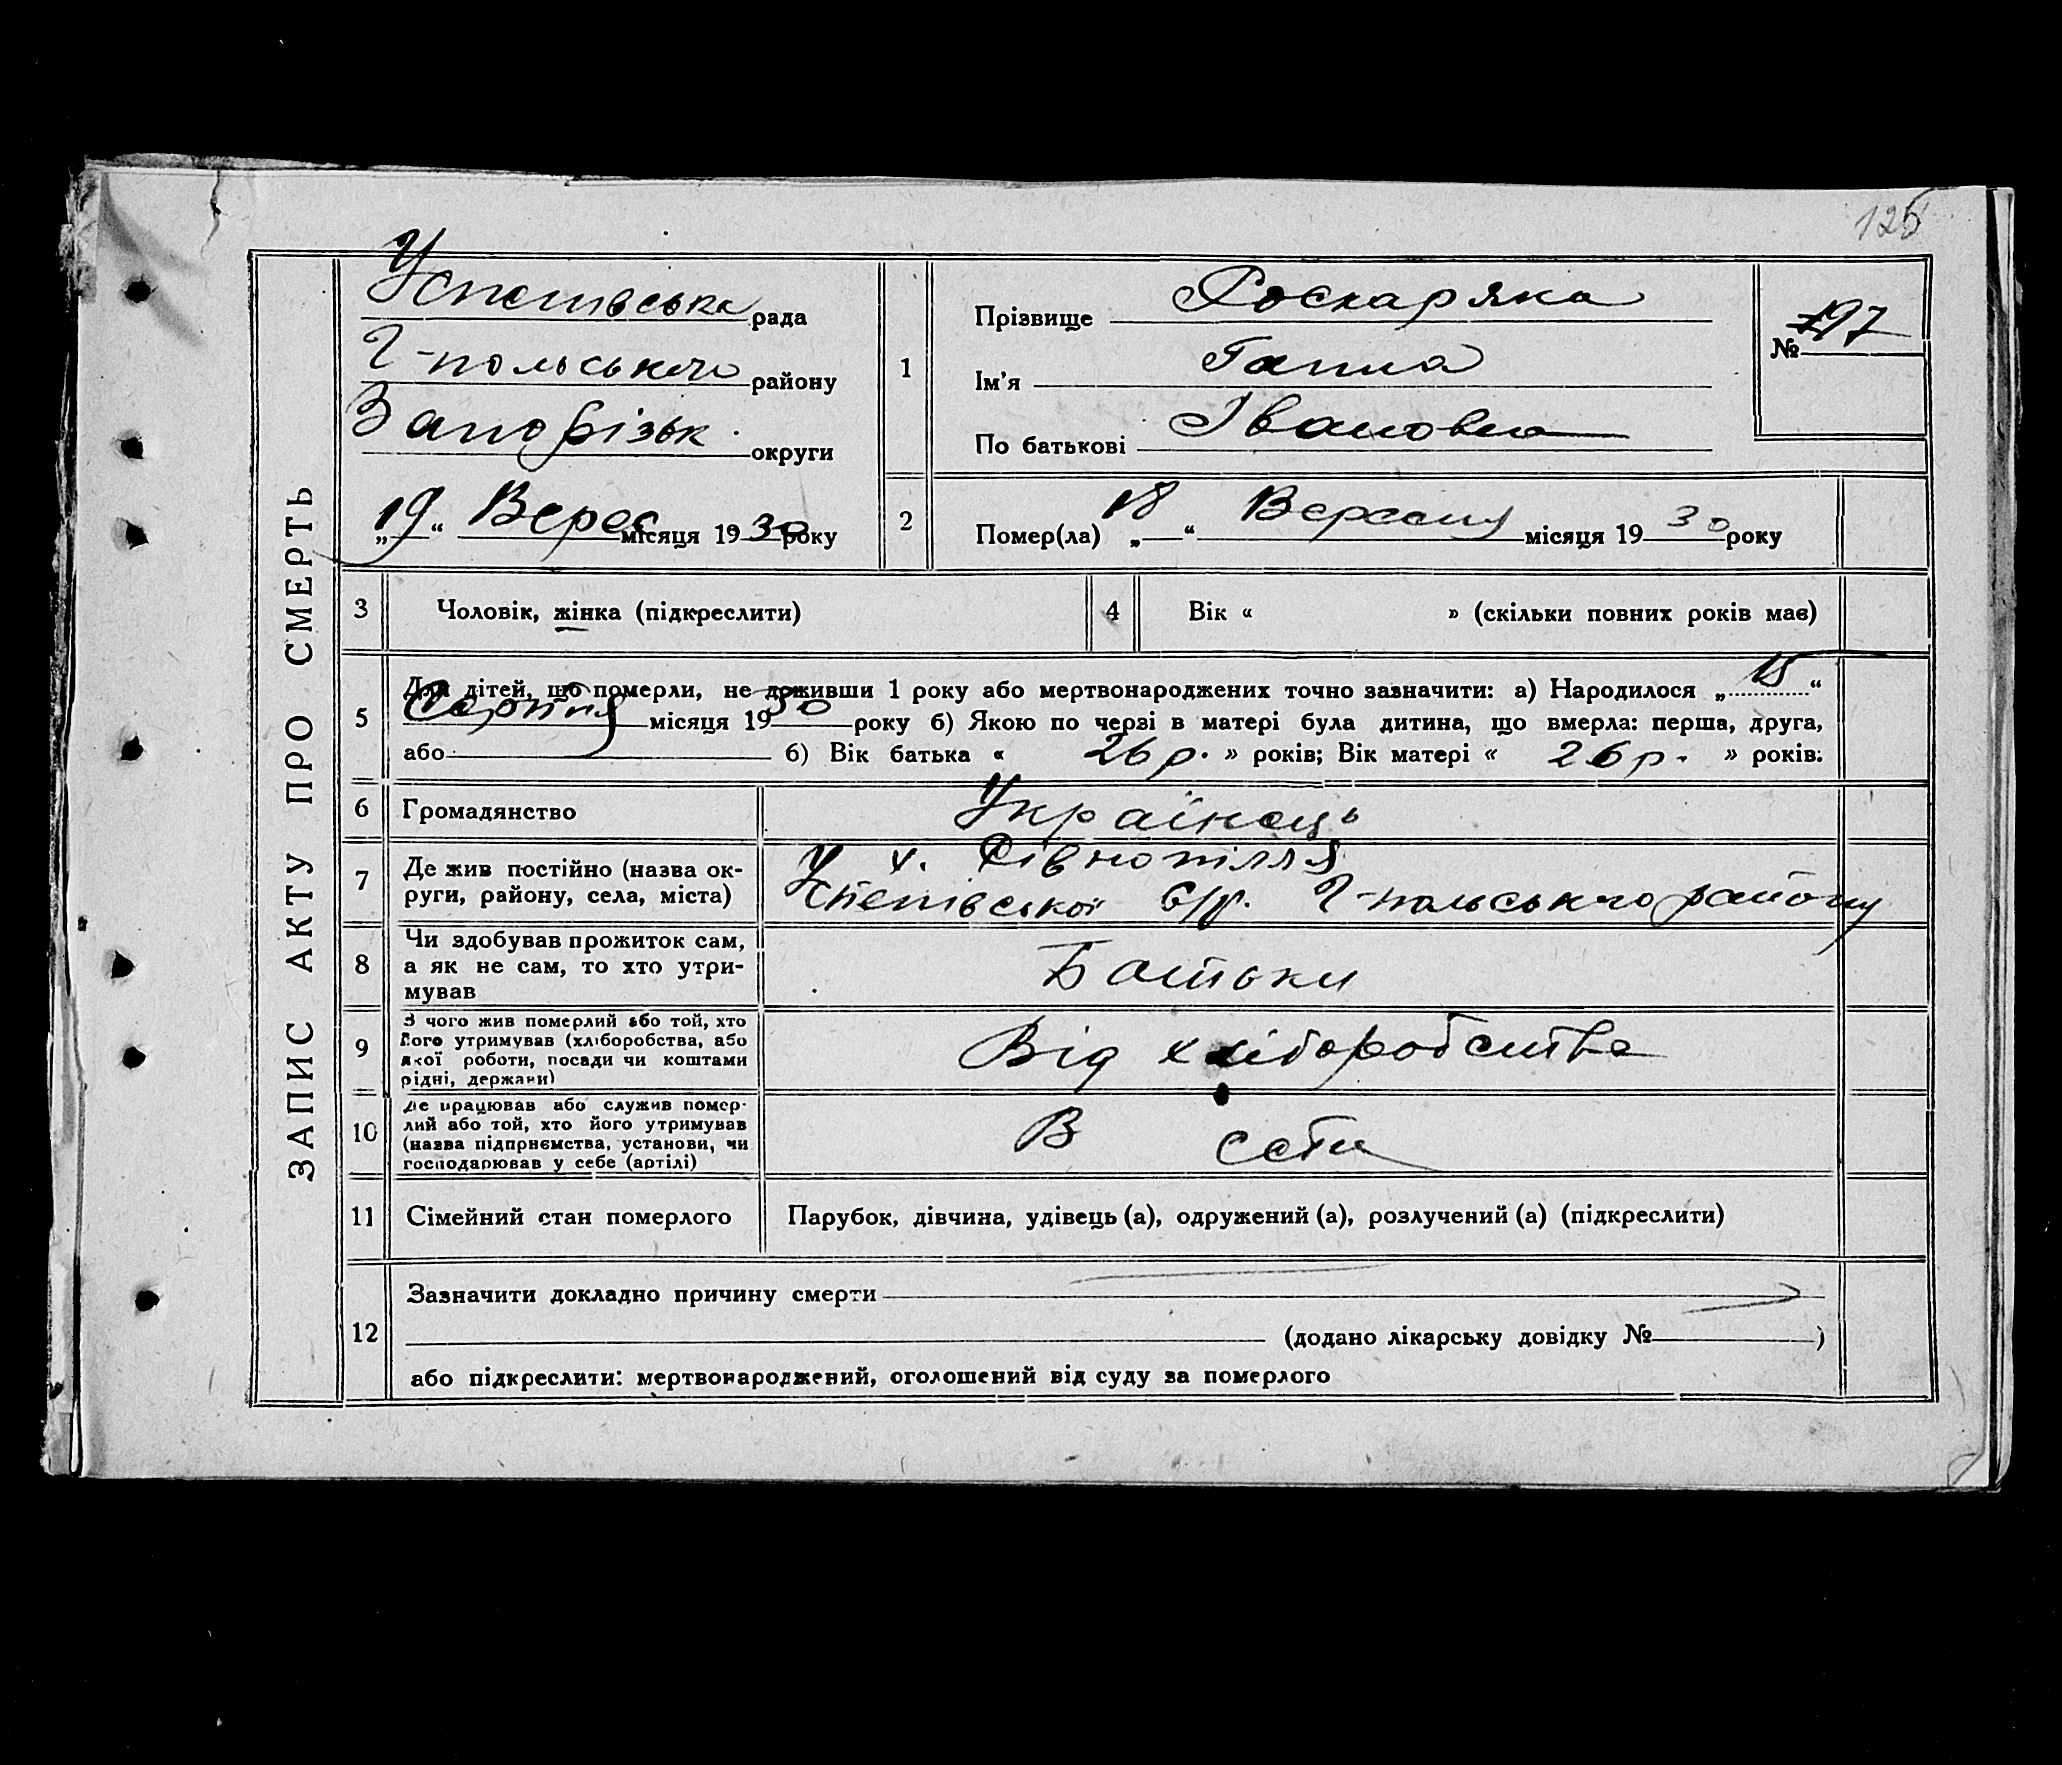 125
ЗАПИС АКТУ ПРО СМЕРТЬ
Успенівська рада
Г-польського району
Запорізьк. округи
„19“ Верес місяця 1930 року
1
Прізвище Роскаряка
Ім'я Ганна
По батькові Івановна
№ 197
2
Помер(ла) „18“ Вересня місяця 1930 року
3 Чоловік, жінка (підкреслити)
4 Вік « » (скільки повних років має)
5 Для дітей, що померли, не доживши 1 року або мертвонароджених точно зазначити: а) Народилося „15“
Серпня місяця 1930 року б) Якою по черзі в матері була дитина, що вмерла: перша, друга,
або б) Вік батька « 26 р. » років; Вік матері « 26 р. » років.
6 Громадянство Українець
7 Де жив постійно (назва ок-
руги, району, села, міста)
х. Рівнопілля
Успенівської с/р. Г-польського району
8 Чи здобував прожиток сам,
а як не сам, то хто утри-
мував
Батьки
9 З чого жив померлий або той, хто
його утримував (хліборобства, або
якої роботи, посади чи коштами
рідні, держави)
Від хліборобства
10 Де працював або служив помер-
лий або той, хто його утримував
(назва підприємства, установи, чи
господарював у себе (артілі)
В себе
11 Сімейний стан померлого Парубок, дівчина, удівець (а), одружений (а), розлучений (а) (підкреслити)
12 Зазначити докладно причину смерти
(додано лікарську довідку № )
або підкреслити: мертвонароджений, оголошений від суду за померлого